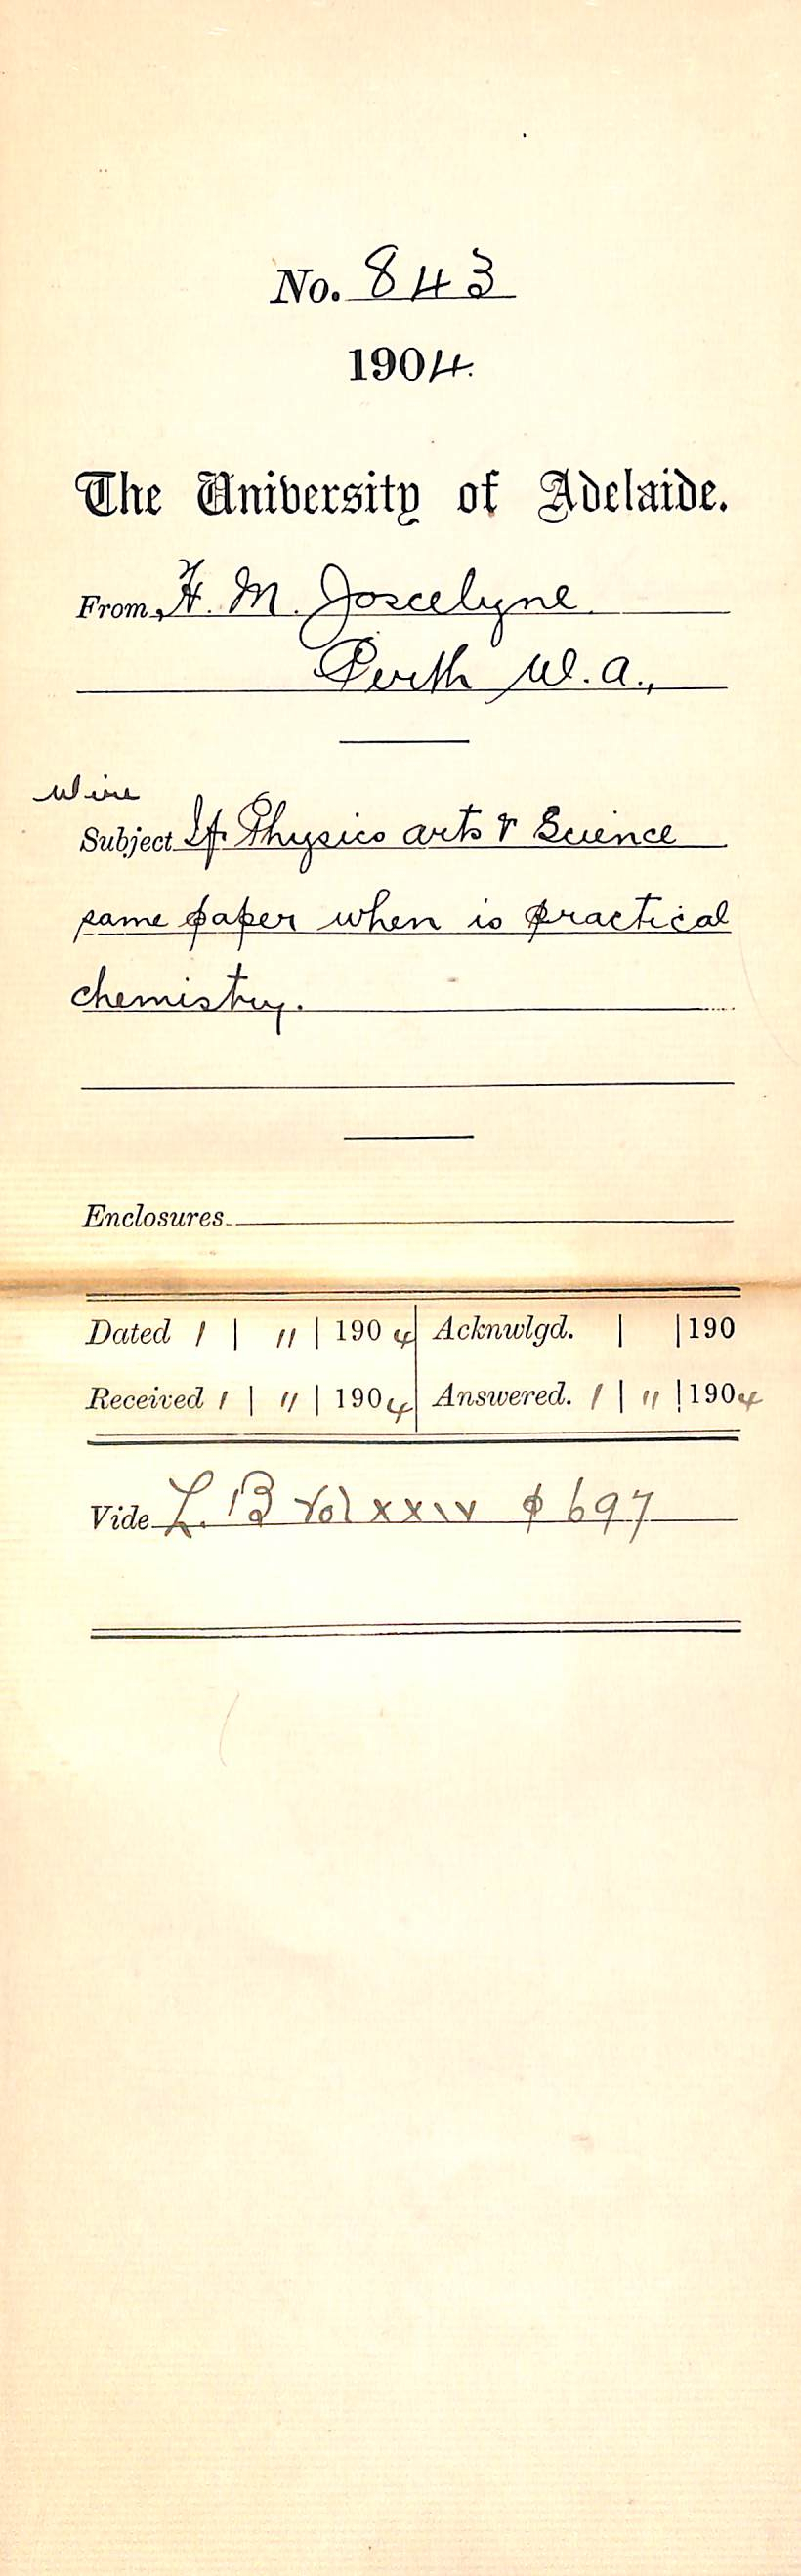 No. 843
1904.
The University of Adelaide.
From H. M. Joscelyne
Perth W.A.,
Wire
Subject If Physics arts & Science
same paper when is practical
chemistry.
Enclosures
Dated 1 | 11 | 1904 Acknwlgd. | | 190
Received 1 | 11 | 1904 Answered. 1 | 11 | 1904
Vide L. B Vol xxiv p 697